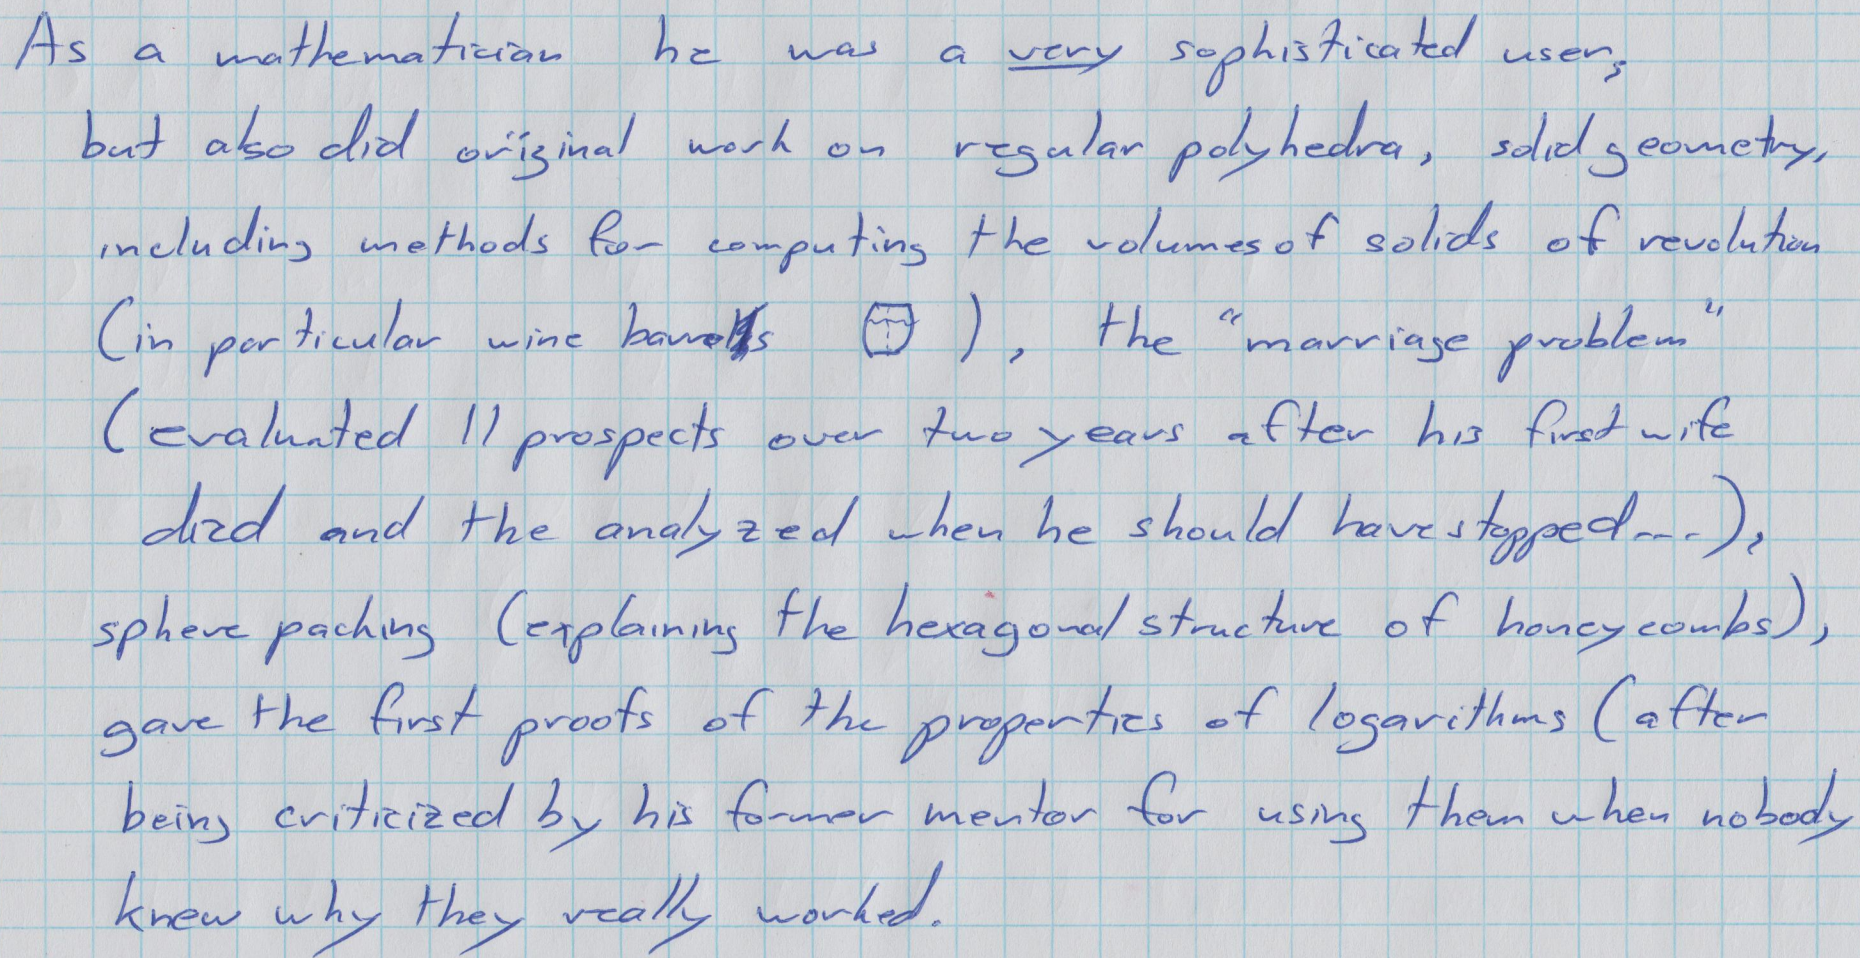 As a mathematician he was a very sophisticated user,
but also did original work on regular polyhedra, solid geometry,
including methods for computing the volumes of solids of revolution
(in particular wine barrels ), the "marriage problem"
(evaluated 11 prospects over two years after his first wife
died and the analyzed when he should have stopped...),
sphere packing (explaining the hexagonal structure of honeycombs),
gave the first proofs of the properties of logarithms (after
being criticized by his former mentor for using them when nobody
knew why they really worked.